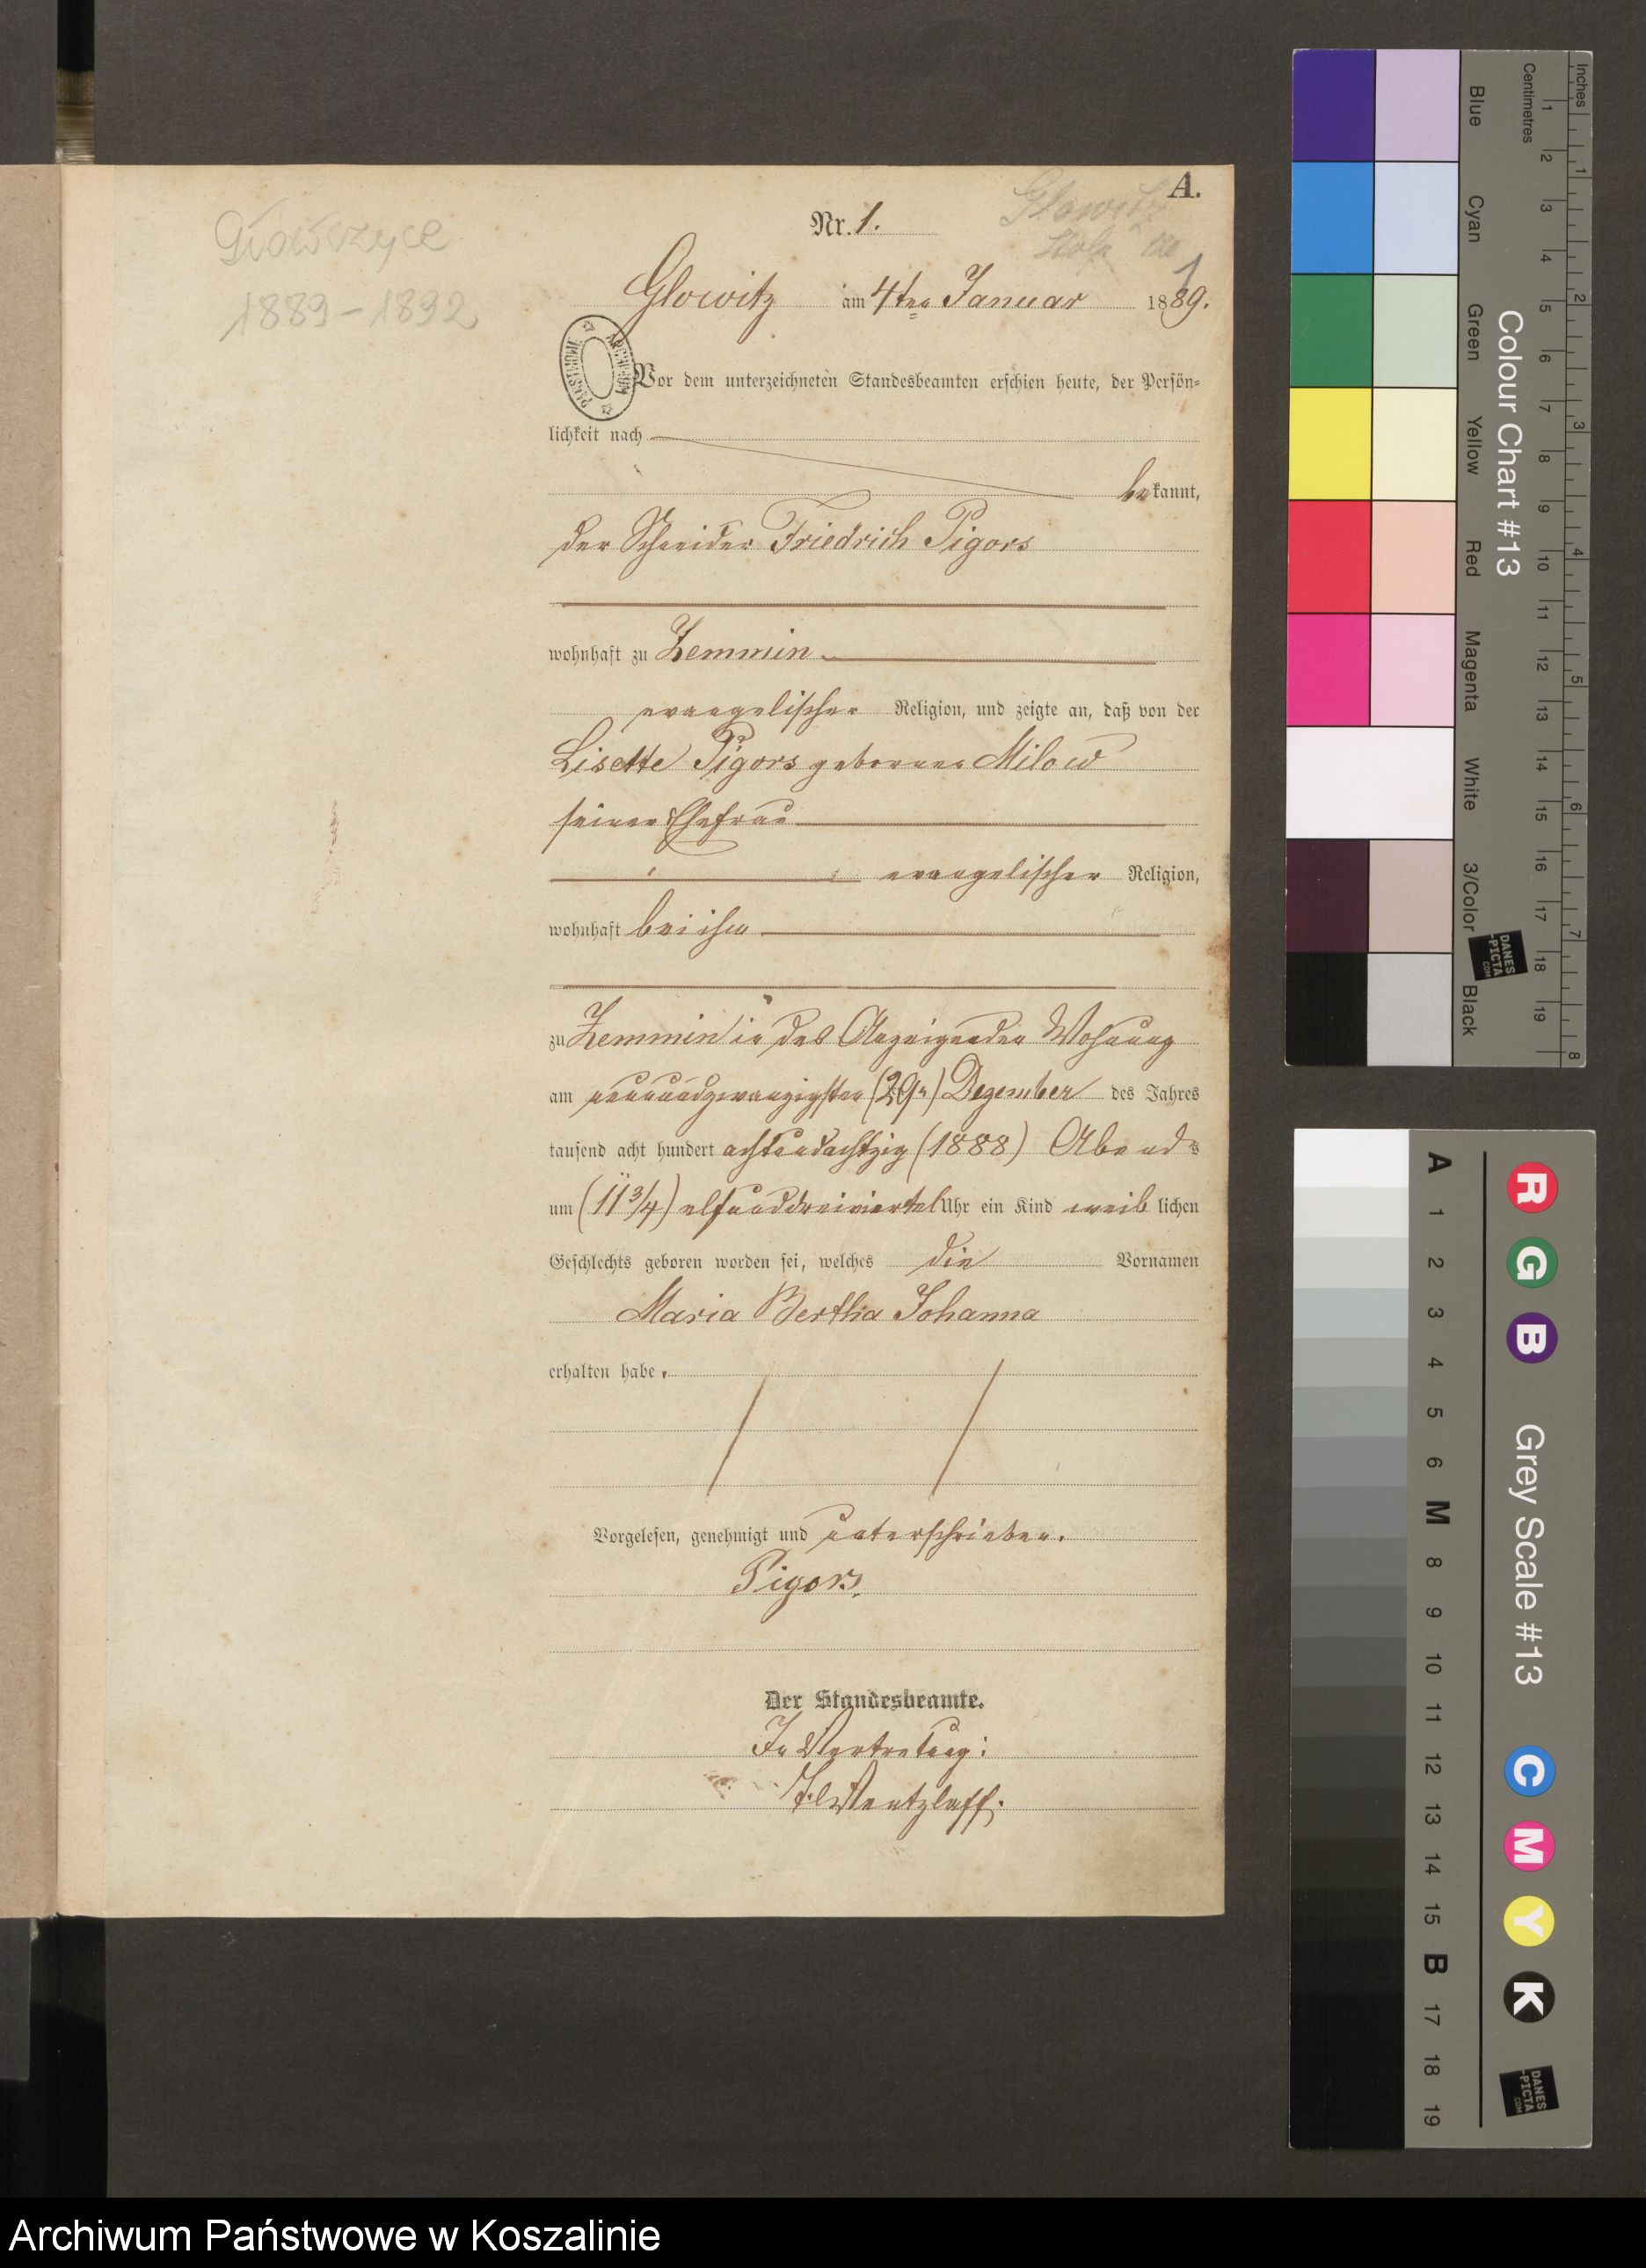 A.
Nr. 1.
Glowitz
Główczyce
1889-1892
1
Glowitz am 4ten Januar 1889.
ARCHIWUM PAŃSTWOWE
Vor dem unterzeichneten Standesbeamten erschien heute, der Persön-
lichkeit nach
bekannt,
der Schneider Friedrich Pigors
wohnhaft zu Zemmin
evangelischer Religion, und zeigte an, daß von der
Lisette Pigors geborenen Milow
seiner Ehefrau
evangelischer Religion,
wohnhaft bei ihm
zu Zemmin in des Anzeigenden Wohnung
am neunundzwanzigsten (29n) Dezember des Jahres
tausend acht hundert achtundachtzig (1888) Abends
um (11 3/4) elfunddreiviertel Uhr ein Kind weiblichen
Geschlechts geboren worden sei, welches die Vornamen
Maria Bertha Johanna
erhalten habe.
Vorgelesen, genehmigt und unterschrieben.
Pigors.
Der Standesbeamte.
In Vertretung:
Wentzlaff.
Colour Chart #13
Blue
Cyan
Green
Yellow
Red
Magenta
White
3/Color
Black
Centimetres
1 2 3 4 5 6 7 8 9 10 11 12 13 14 15 16 17 18 19
Inches
1 2 3 4 5 6 7 8
DANES
-PICTA
.COM
Grey Scale #13
A 1 2 3 4 5 6 M 8 9 10 11 12 13 14 15 B 17 18 19
R G B
C M Y K
DANES
-PICTA
.COM
Archiwum Państwowe w Koszalinie